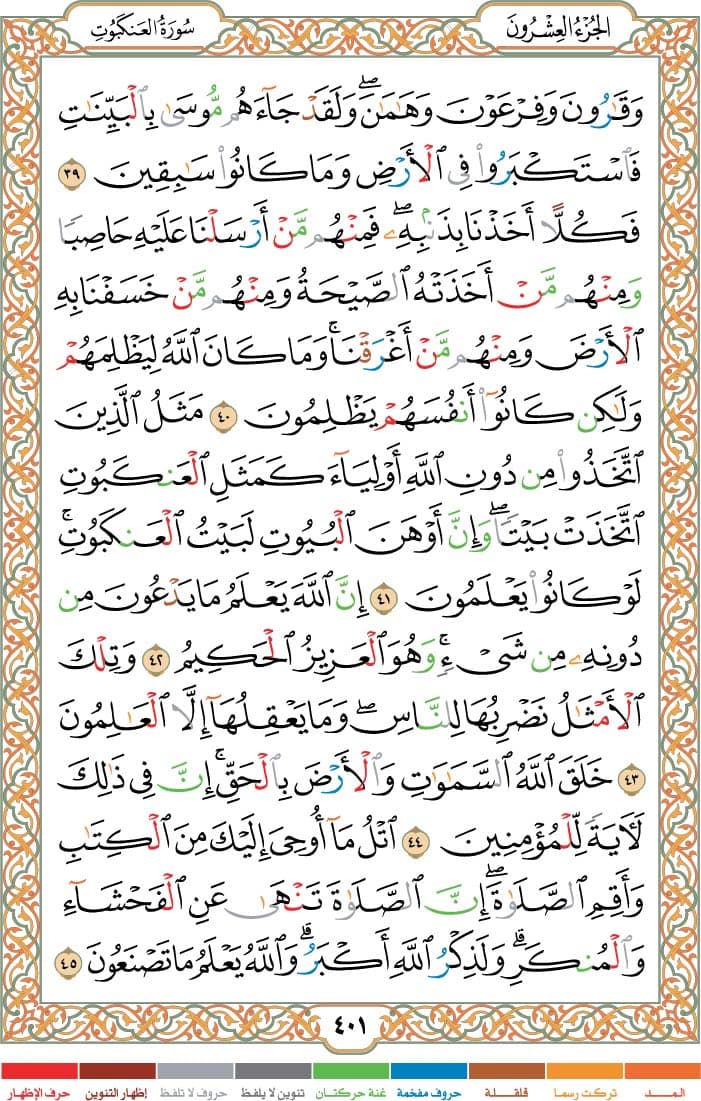 الجُزْءُ العِشْرُونَ
سُورَةُ العَنكَبُوتِ
وَقَٰرُونَ وَفِرْعَوْنَ وَهَٰمَٰنَۖ وَلَقَدْ جَآءَهُم مُّوسَىٰ بِٱلْبَيِّنَٰتِ
فَٱسْتَكْبَرُوا۟ فِى ٱلْأَرْضِ وَمَا كَانُوا۟ سَٰبِقِينَ ٣٩
فَكُلًّا أَخَذْنَا بِذَنۢبِهِۦۖ فَمِنْهُم مَّنْ أَرْسَلْنَا عَلَيْهِ حَاصِبًا
وَمِنْهُم مَّنْ أَخَذَتْهُ ٱلصَّيْحَةُ وَمِنْهُم مَّنْ خَسَفْنَا بِهِ
ٱلْأَرْضَ وَمِنْهُم مَّنْ أَغْرَقْنَاۚ وَمَا كَانَ ٱللَّهُ لِيَظْلِمَهُمْ
وَلَٰكِن كَانُوٓا۟ أَنفُسَهُمْ يَظْلِمُونَ ٤٠ مَثَلُ ٱلَّذِينَ
ٱتَّخَذُوا۟ مِن دُونِ ٱللَّهِ أَوْلِيَآءَ كَمَثَلِ ٱلْعَنكَبُوتِ
ٱتَّخَذَتْ بَيْتًاۖ وَإِنَّ أَوْهَنَ ٱلْبُيُوتِ لَبَيْتُ ٱلْعَنكَبُوتِۚ
لَوْ كَانُوا۟ يَعْلَمُونَ ٤١ إِنَّ ٱللَّهَ يَعْلَمُ مَا يَدْعُونَ مِن
دُونِهِۦ مِن شَىْءٍۚ وَهُوَ ٱلْعَزِيزُ ٱلْحَكِيمُ ٤٢ وَتِلْكَ
ٱلْأَمْثَٰلُ نَضْرِبُهَا لِلنَّاسِۖ وَمَا يَعْقِلُهَآ إِلَّا ٱلْعَٰلِمُونَ
٤٣ خَلَقَ ٱللَّهُ ٱلسَّمَٰوَٰتِ وَٱلْأَرْضَ بِٱلْحَقِّۚ إِنَّ فِى ذَٰلِكَ
لَءَايَةً لِّلْمُؤْمِنِينَ ٤٤ ٱتْلُ مَآ أُوحِىَ إِلَيْكَ مِنَ ٱلْكِتَٰبِ
وَأَقِمِ ٱلصَّلَوٰةَۖ إِنَّ ٱلصَّلَوٰةَ تَنْهَىٰ عَنِ ٱلْفَحْشَآءِ
وَٱلْمُنكَرِۗ وَلَذِكْرُ ٱللَّهِ أَكْبَرُۗ وَٱللَّهُ يَعْلَمُ مَا تَصْنَعُونَ ٤٥
٤٠١
المـــد تركت رسما قلقـلة حروف مفخمة غنة حركتـان تنوين لا يلفظ حروف لا تلفظ إظهار التنوين حرف الإظهار